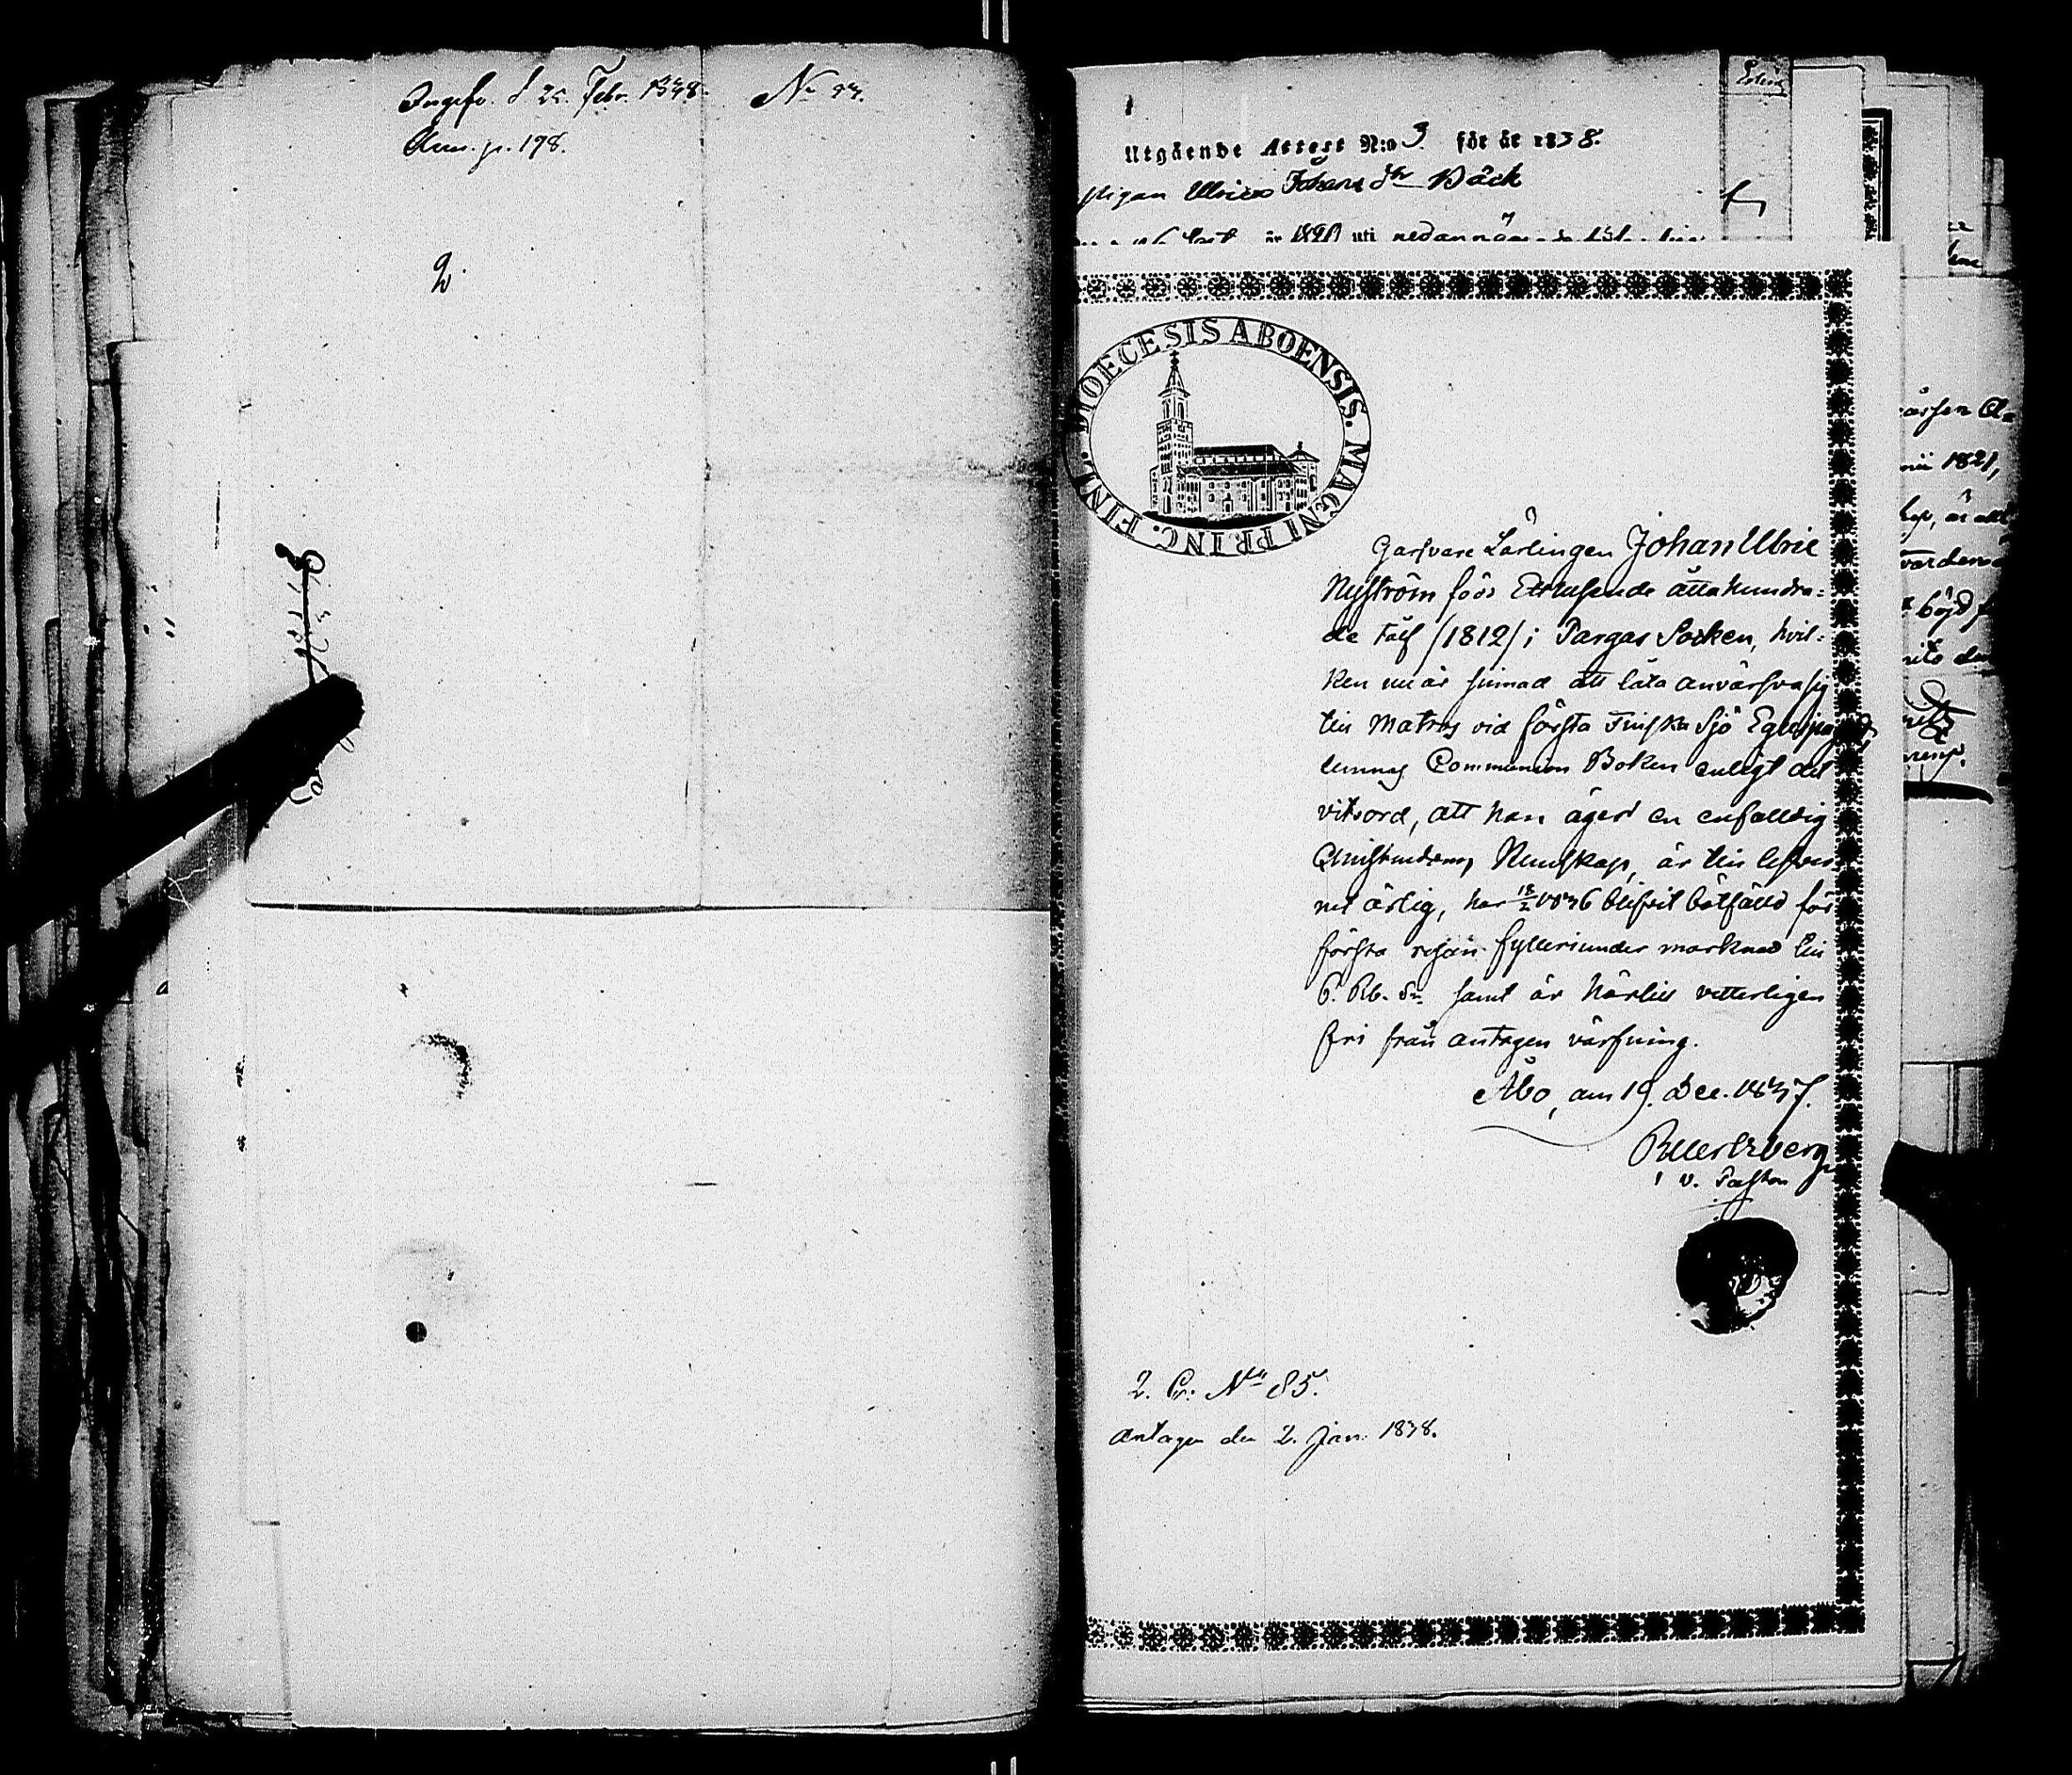 Ingefv. d 25. Febr. 1838.
No 33.
Ann. p. 178.
2.
Utgående Attest N:o 3. för år 1838.
Pigan Ulrica Johans dtr Bäck
år 1821 uti nedannämnde
DIOECESIS ABOENSIS. MAGNI PRINC. FINL.
Garfvare Lärlingen Johan Ulric
Nyström född Ettusende åttahundra=
de Tolf /1812/ i Pargas Socken, hvil=
ken nu är sinnad att låta anvärfva sig
till Matros vid första Finska Sjö Equipaget
lemnas Communion Boken enligt det
vitsord, att han äger en enfalldig
Christendoms Kunskap, är till lefver
net ärlig, har 18/2 1836 blifvit bötfälld för
första resan fylleri under marknad till
6. Rb. Sr. samt är härtills vetterligen
fri från antagen värfning.
Åbo, am 19. Dec. 1837.
v. Pastor
2. Cr: No 85.
Antagen den 2. Jan: 1838.
1821,
är att
böjd f